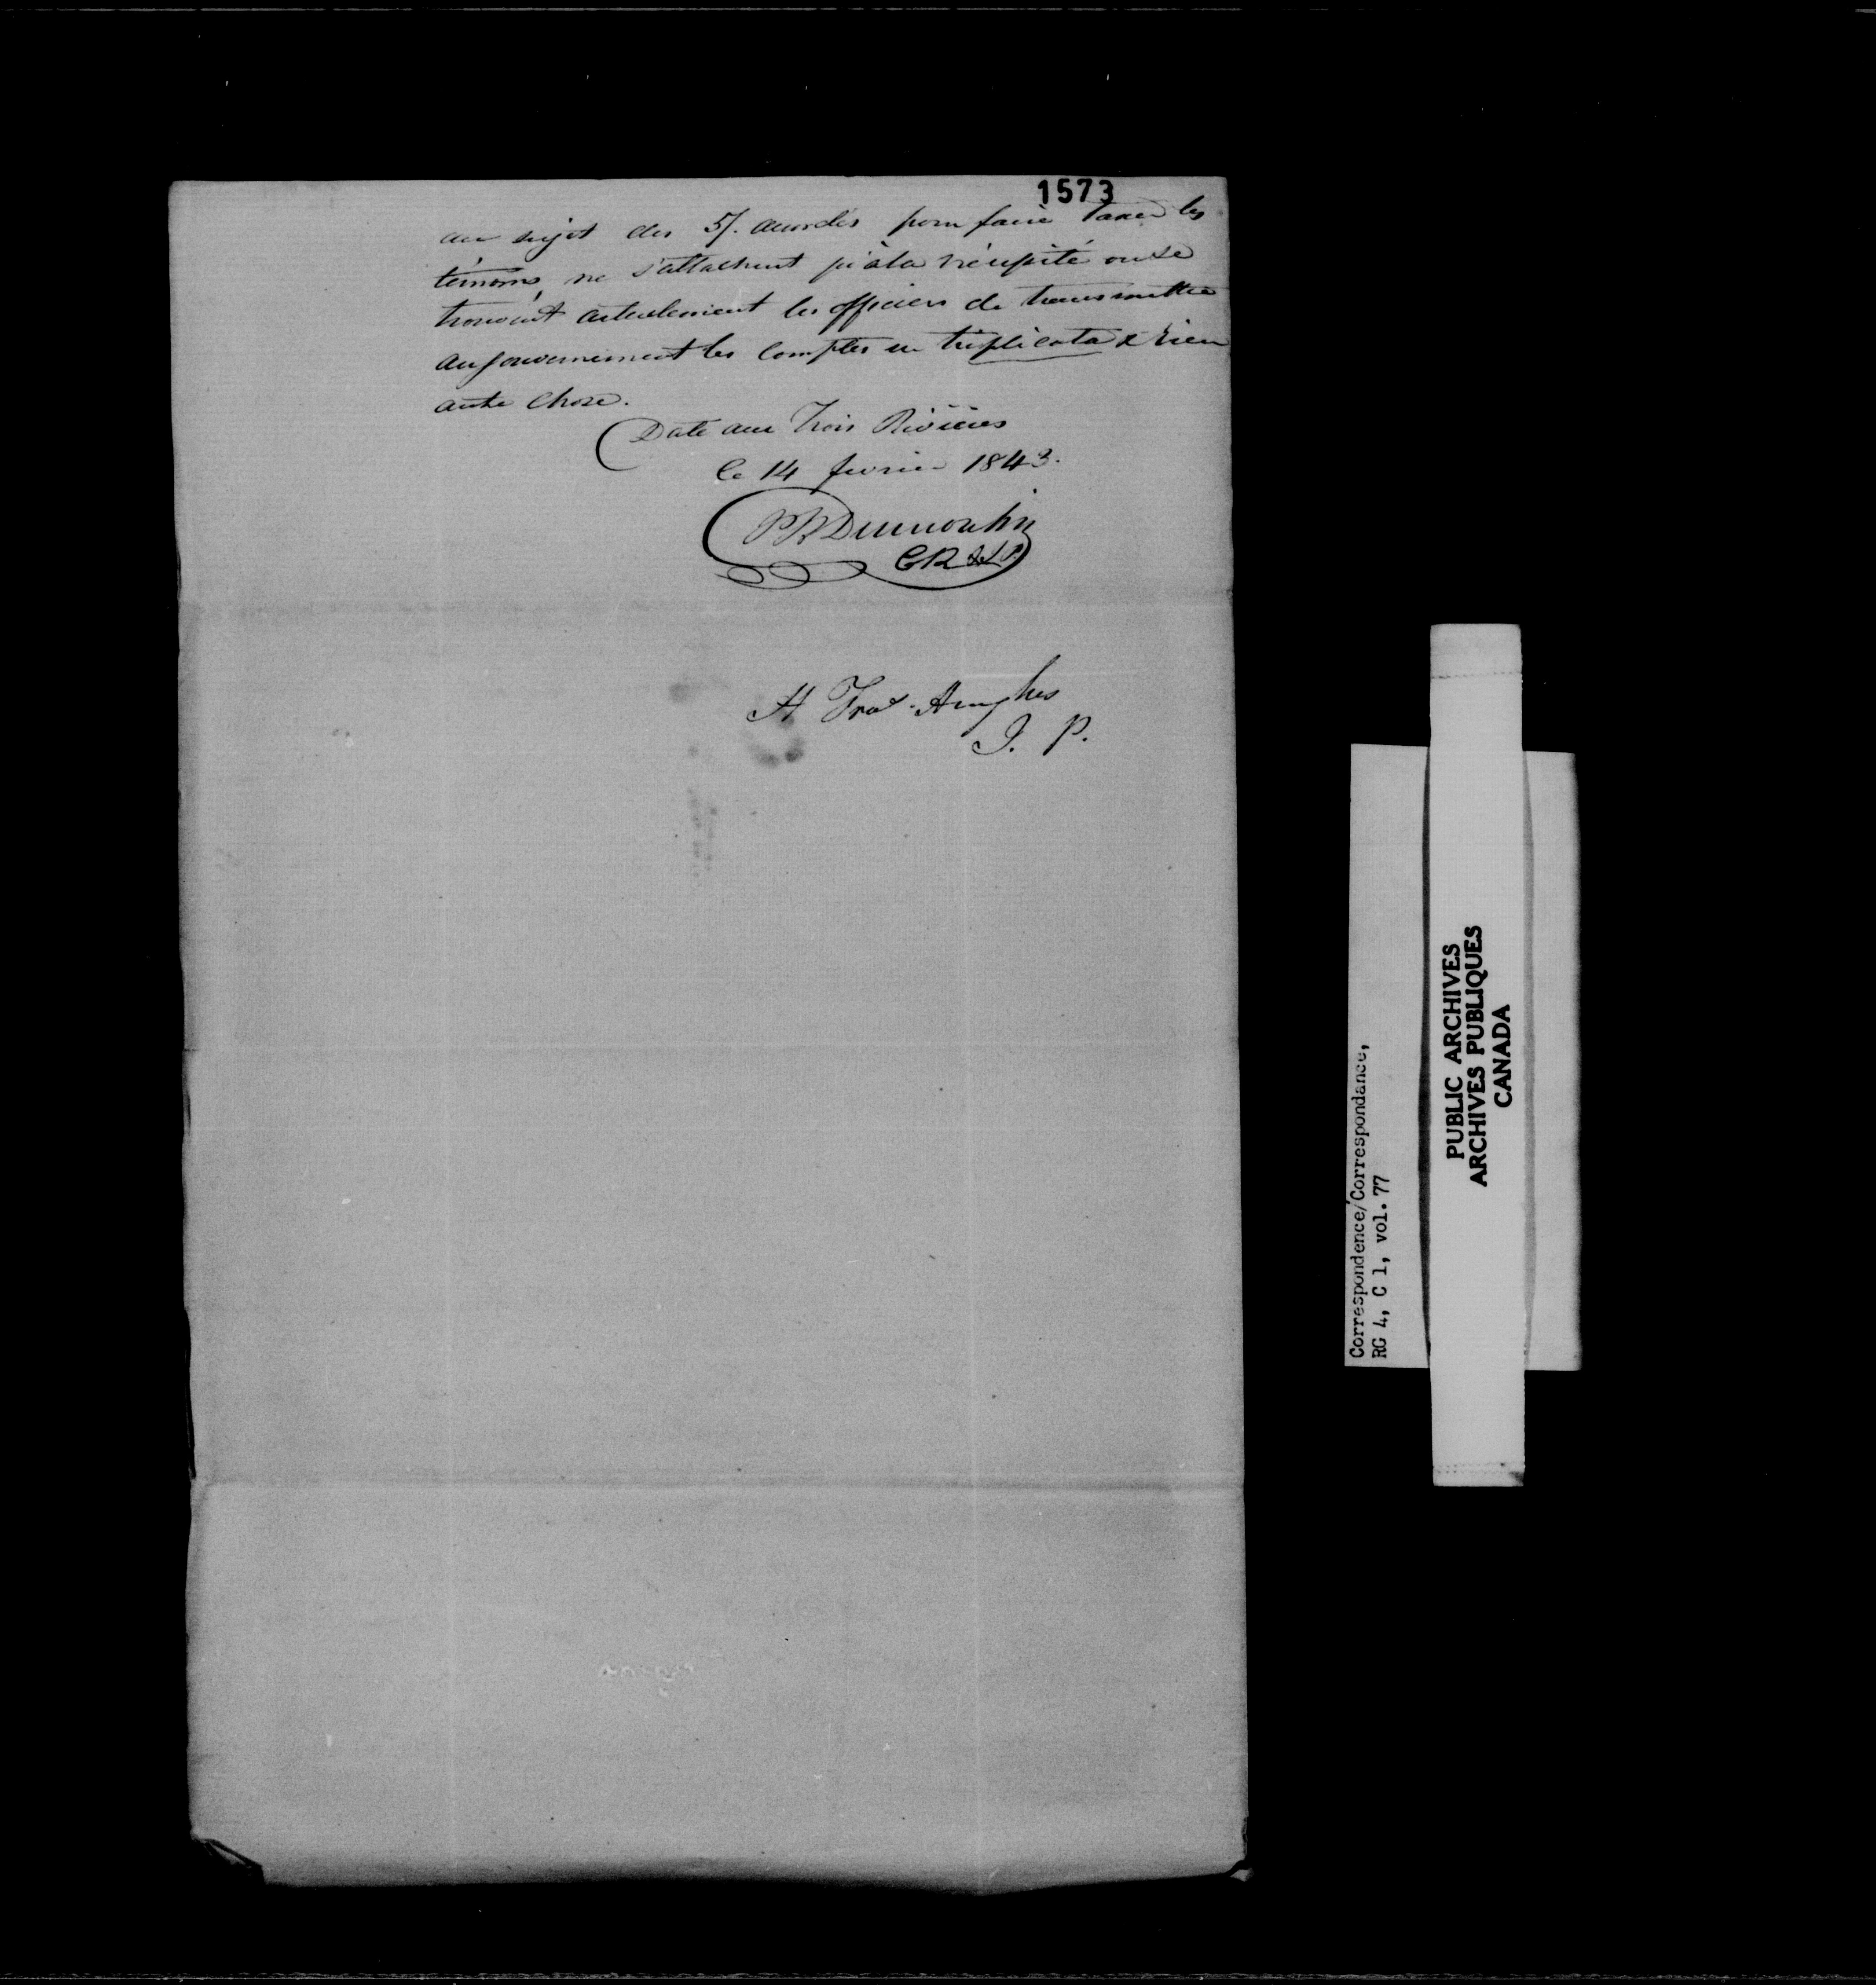 1573
au sujet des 5/. accordés pour faire taxer les
témoins, ne s'attachent qu'à la nécessité ou se
trouvent actuellement les officiers de transmettre
au gouvernement les comptes en triplicata & rien
autre chose.
Daté aux Trois Rivières
le 14 fevrier 1843.
Dumoulin
A Frs. Hughes
J. P.
Correspondence/Correspondance,
RG 4, C 1, vol. 77
PUBLIC ARCHIVES
ARCHIVES PUBLIQUES
CANADA